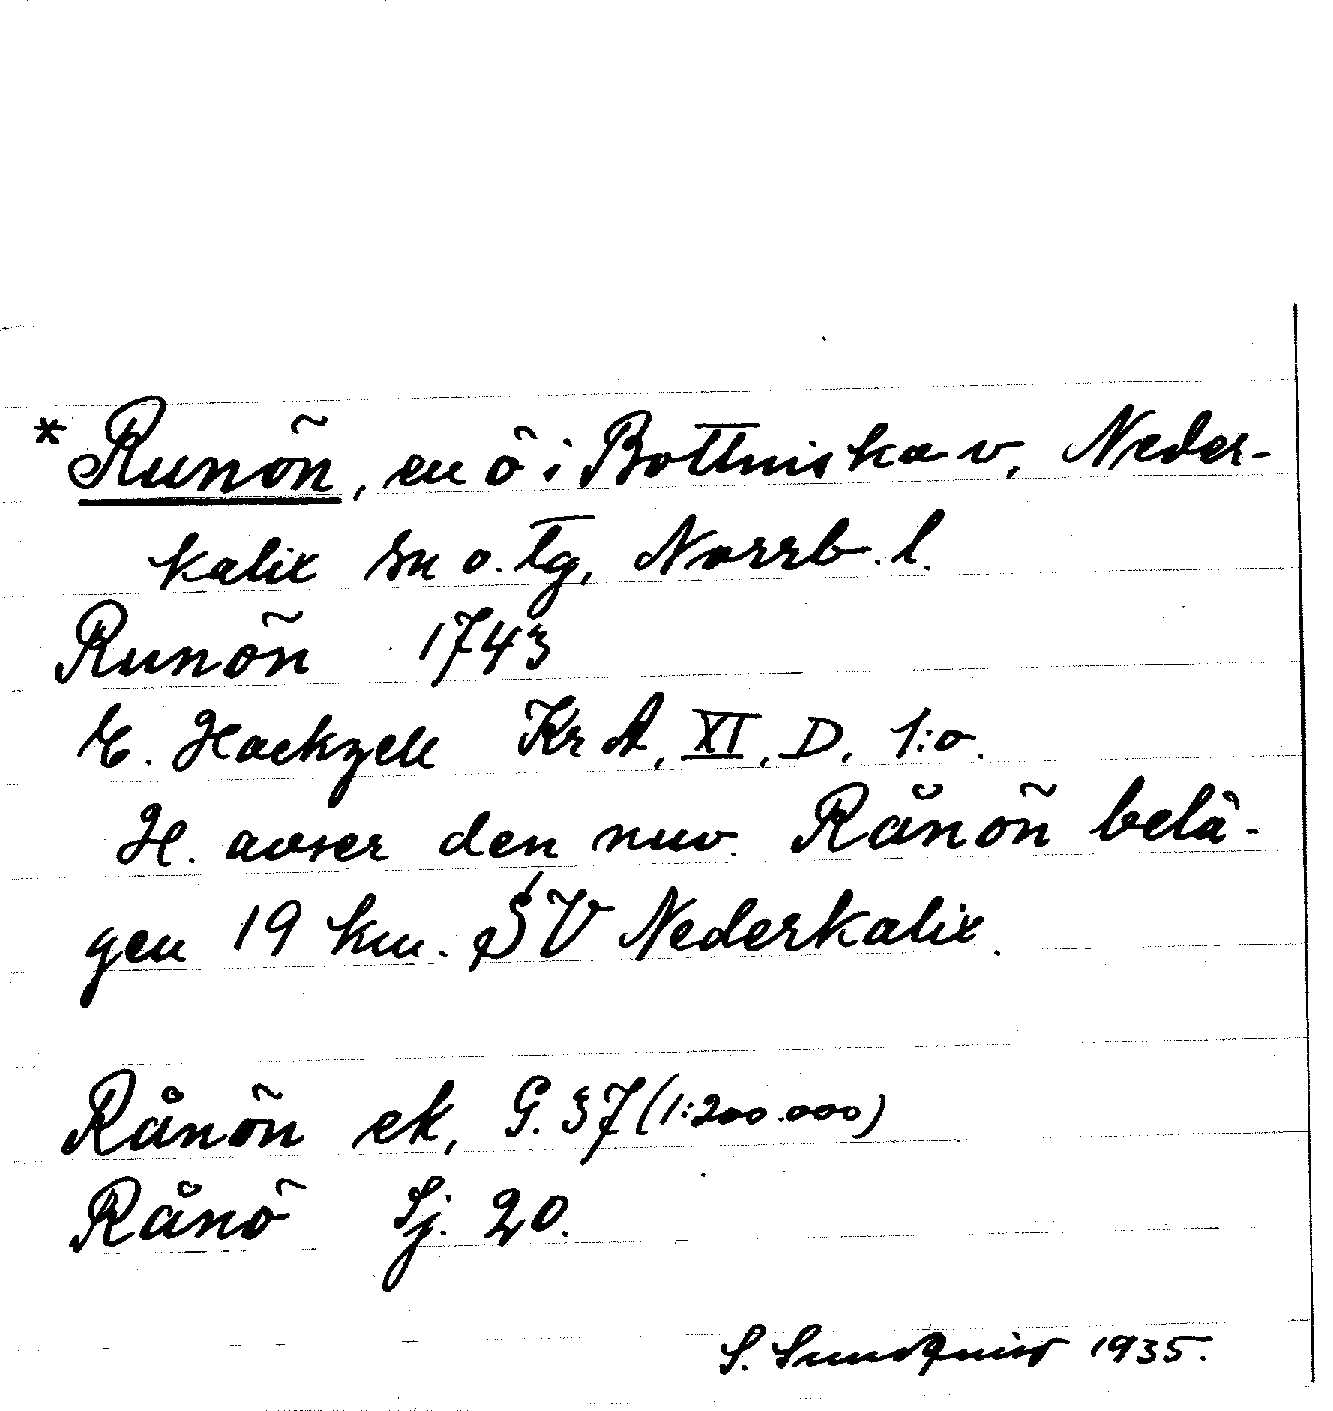 * Runön, en ö i Bottniska v, Neder-
kalix sn o. tg, Norrb. l.
Runön 1743
E. Hackzell KrA, XI, D, 1:o.
H. avser den nuv. Rånön belä-
gen 19 km. SV Nederkalix.
Rånön ek, G. 37 (1:200.000)
Rånö Sj. 20.
S. Sundquist 1935.